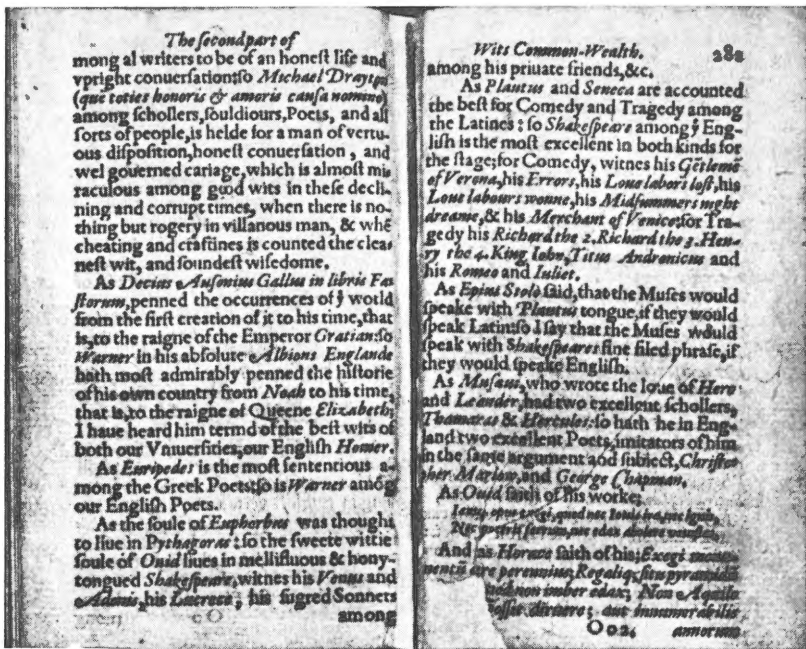 The second part of
mong al writers to be of an honest life and
vpright conuersation:so Michael Drayton
(quē toties honoris & amoris causa nomino)
among schollers,souldiours,Poets, and all
sorts of people,is helde for a man of vertu-
ous disposition,honest conuersation , and
wel gouerned cariage,which is almost mi
raculous among good wits in these decli-
ning and corrupt times, when there is no-
thing but rogery in villanous man, & whē
cheating and craftines is counted the clea
nest wit, and soundest wisedome.
As Decius Ausonius Gallus in libris Fa
storum,penned the occurrences of ẏ world
from the first creation of it to his time,that
is,to the raigne of the Emperor Gratian:so
Warner in his absolute Albions Englande
hath most admirably penned the historie
of his own country from Noah to his time,
that is,to the raigne of Queene Elizabeth;
I haue heard him termd of the best wits of
both our Vniuersities,our English Homer.
As Euripedes is the most sententious a-
mong the Greek Poets:so is Warner amōg
our English Poets.
As the soule of Euphorbus was thought
to liue in Pythagoras : so the sweete wittie
soule of Ouid liues in mellifluous & hony-
tongued Shakespeare,witnes his Venus and
Adonis,his Lucrece, his sugred Sonnets
among
Wits Common-Wealth. 282
among his priuate friends,&c.
As Plautus and Seneca are accounted
the best for Comedy and Tragedy among
the Latines : so Shakespeare among ẏ Eng-
lish is the most excellent in both kinds for
the stage;for Comedy, witnes his Gētlemē
of Verona,his Errors,his Loue labors lost,his
Loue labours wonne,his Midsummers night
dreame,& his Merchant of Venice:for Tra-
gedy his Richard the 2. Richard the 3. Hen-
ry the 4. King Iohn, Titus Andronicus and
his Romeo and Iuliet.
As Epius Stolo said,that the Muses would
speake with Plautus tongue,if they would
speak Latin:so I say that the Muses would
speak with Shakespeares fine filed phrase,if
they would speake English.
As Musæus,who wrote the loue of Hero
and Leander,had two excellent schollers,
Thamaras & Hercules:so hath he in Eng-
land two excellent Poets,imitators of him
in the same argument and subiect,Christo-
pher Marlow,and George Chapman.
As Ouid saith of his worke;
Iamq; opus exegi, quod nec Iouis ira,nec ignis,
Nec poterit ferrum,nec edax abolere vetustas.
And as Horace saith of his; Exegi monu-
mentū ære perennius,Regaliq; situ pyramidū
non imber edax; Non Aquilo
possit diruere; aut innumerabilis
O o 2. annorum